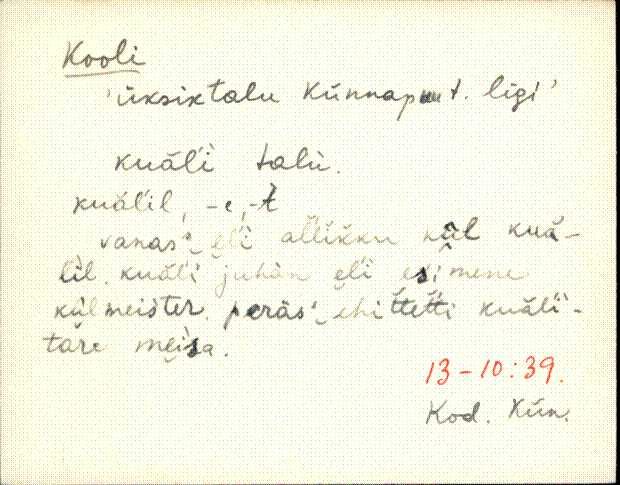 Kooli
'üksiktalu Künnapuu t. ligi'
kuäĺi talù.
kuäĺil, -e, -t
vanas' eĺi allikku kuä-
ĺil. kuäĺi juhàn eĺi esimene
külmeister. peräs' ehitteťti kuäĺi-
tare meisa.
13-10:39.
Kod. Kün.